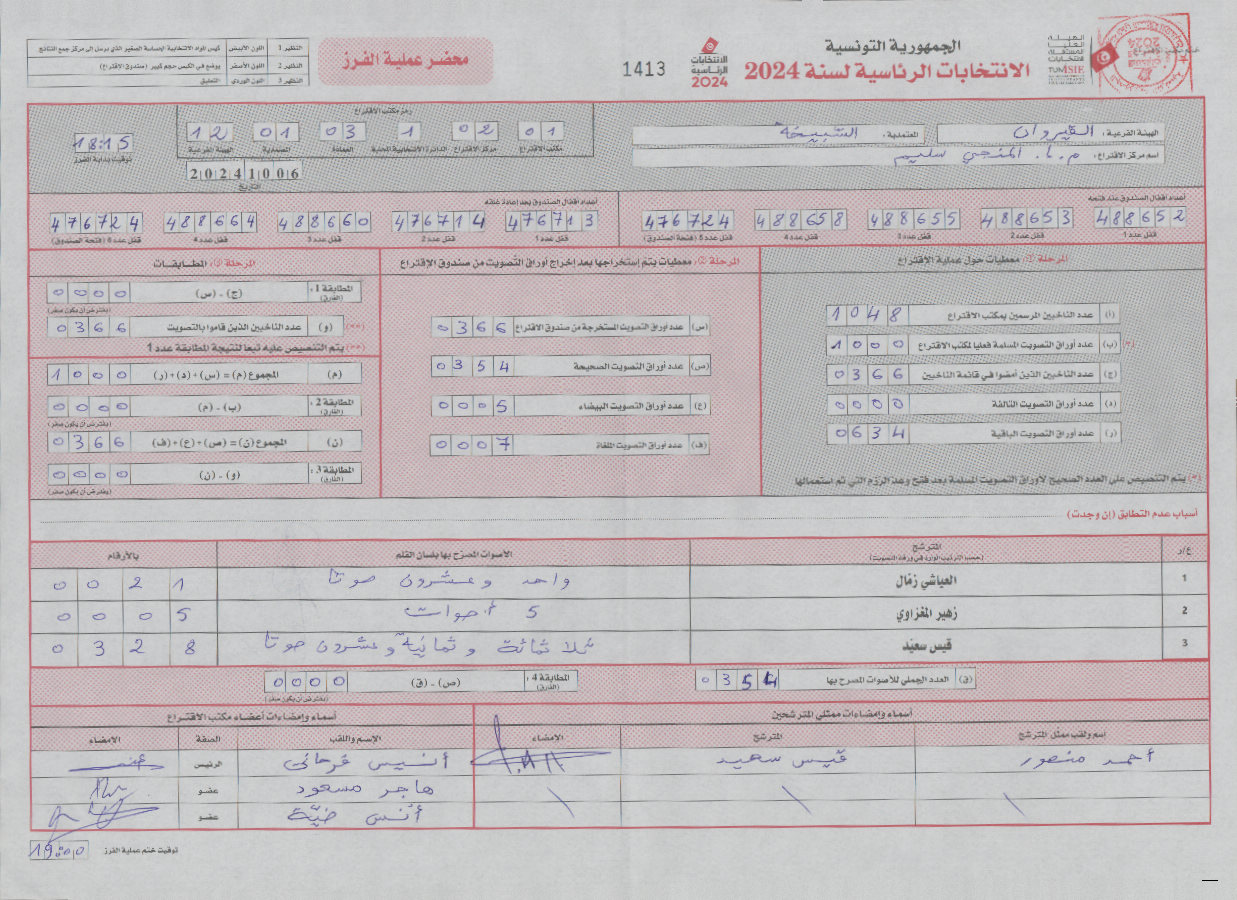 الجمهورية التونسية
الانتخابات الرئاسية لسنة 2024
الهيئة العليا المستقلة للانتخابات
TUNISIE
الانتخابات الرئاسية 2024
1413
محضر عملية الفرز
النظير 1 اللون الأبيض كيس المواد الانتخابية الحساسة الصغير الذي يرسل الى مركز جمع النتائج
النظير 2 اللون الأصفر يوضع في الكيس حجم كبير (صندوق الاقتراع)
النظير 3 اللون الوردي التعليق
الهيئة الفرعية : القيروان المعتمدية : الشبيخة
اسم مركز الاقتراع : م.ا. المنجي سليم
رمز مكتب الاقتراع
01 02 1 03 01 12
مكتب الاقتراع مركز الاقتراع الدائرة الانتخابية المحلية العمادة المعتمدية الهيئة الفرعية
18:15
توقيت بداية الفرز
20241006
التاريخ
أعداد أقفال الصندوق عند فتحه
488652 488653 488655 488658 476724
قفل عدد 1 قفل عدد 2 قفل عدد 3 قفل عدد 4 قفل عدد 5 (فتحة الصندوق)
أعداد أقفال الصندوق بعد إعادة غلقه
476713 476714 488660 488664 476724
قفل عدد 1 قفل عدد 2 قفل عدد 3 قفل عدد 4 قفل عدد 6 (فتحة الصندوق)
المرحلة ①: معطيات حول عملية الاقتراع
(أ) عدد الناخبين المرسمين بمكتب الاقتراع 1048
(*) (ب) عدد أوراق التصويت المسلمة فعليا لمكتب الاقتراع 1000
(ج) عدد الناخبين الذين أمضوا في قائمة الناخبين 0366
(د) عدد أوراق التصويت التالفة 0000
(ر) عدد أوراق التصويت الباقية 0634
(*) يتم التنصيص على العدد الصحيح لأوراق التصويت المسلمة بعد فتح وعد الرزم التي تم استعمالها
المرحلة ②: معطيات يتم إستخراجها بعد إخراج أوراق التصويت من صندوق الإقتراع
(س) عدد أوراق التصويت المستخرجة من صندوق الاقتراع 0366
(ص) عدد أوراق التصويت الصحيحة 0354
(ع) عدد أوراق التصويت البيضاء 0005
(ف) عدد أوراق التصويت الملغاة 0007
المرحلة ③: المطابقات
المطابقة 1 : (الفارق) (ج) - (س) 0000
(يفترض أن يكون صفر)
(**) (و) عدد الناخبين الذين قاموا بالتصويت 0366
(**) يتم التنصيص عليه تبعا لنتيجة المطابقة عدد 1
(م) المجموع (م) = (س) + (د) + (ر) 1000
المطابقة 2 : (الفارق) (ب) - (م) 0000
(يفترض أن يكون صفر)
(ن) المجموع (ن) = (ص) + (ع) + (ف) 0366
المطابقة 3 : (الفارق) (و) - (ن) 0000
(يفترض أن يكون صفر)
أسباب عدم التطابق (إن وجدت)
ع/ر المترشح (حسب الترتيب الوارد في ورقة التصويت) الأصوات المصرح بها بلسان القلم بالأرقام
1 العياشي زمّال واحد وعشرون صوتا 0021
2 زهير المغزاوي 5 أصوات 0005
3 قيس سعيّد ثلاثمائة وثمانية وعشرون صوتا 0328
(ق) العدد الجملي للأصوات المصرح بها 0354
المطابقة 4 : (الفارق) (ص) - (ق) 0000
(يفترض أن يكون صفر)
أسماء وإمضاءات ممثلي المترشحين
اسم ولقب ممثل المترشح المترشح الامضاء
أحمد منصور قيس سعيد
أسماء وإمضاءات أعضاء مكتب الاقتراع
الإسم واللقب الصفة الامضاء
أنيس فرحاني الرئيس
هاجر مسعود عضو
أنس عضو
توقيت ختم عملية الفرز 19:00